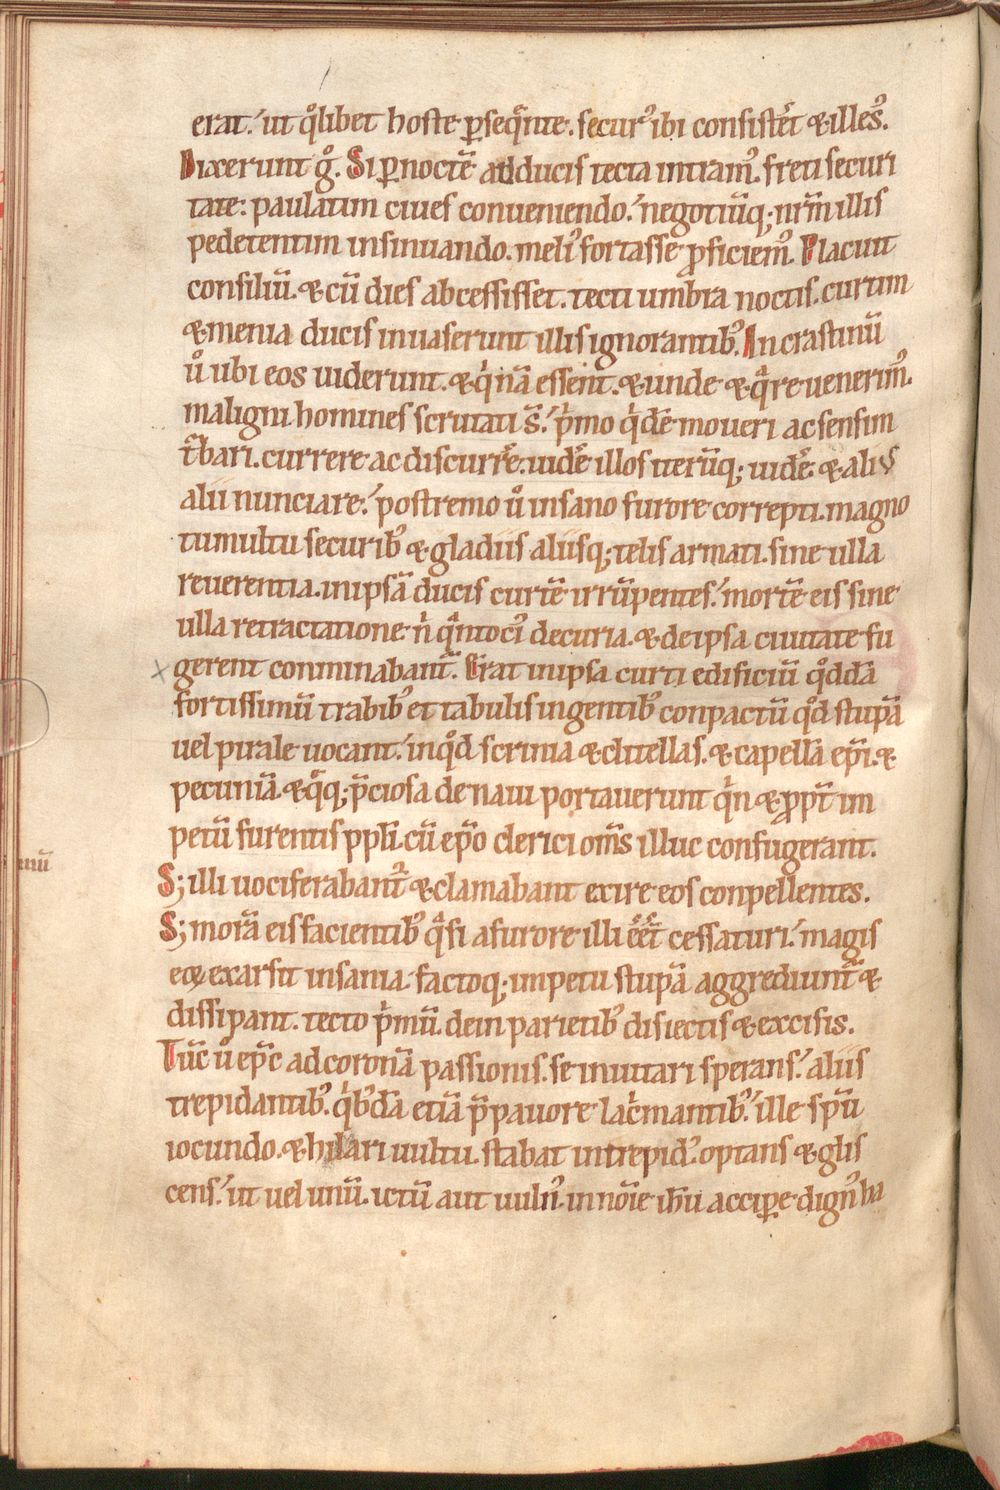 erat. ut qͦlibet hoste ꝑseqͣnte. secur᷒ ibi consistēt & illes᷒.
Dixerunt gͦ. Si ꝑ noctē ad ducis tecta intram᷒. freti securi
tate. paulatim ciues conueniendo. negotiūq; nr̄m illis
pedetentim insinuando. meli᷒ fortasse ꝓficiem᷒. Placuit
consiliū. & cū dies abcessisset. tecti umbra noctis. curtim
& menia ducis inuaserunt illis ignorantib᷒. In crastinū
uͦ ubi eos uiderunt. & qͥnā essent. & unde & qͣre venerint.
maligni homines scrutati s̄. pͥmo qͥdē moueri ac sensim
tͬbari. currere ac discurrē. uidē illos iterūq; uidē. & aliis
alii nunciare. postremo uͦ insano furore correpti. magno
tumultu securib᷒ & gladiis aliisq; telis armati. sine ulla
reuerentia. in ipsā ducis curtē irrūpentes. mortē eis sine
ulla retractatione nͥ qͣntoci᷒ de curia. & de ipsa ciuitate fu
gerent conminabant᷑. Erat in ipsa curti edificiū qͦddā
fortissimū trabib᷒ et tabulis ingentib᷒ conpactū qͦd stupā
uel pirale uocant. in qͦd scrinia & clitellas. & capellā ep̄i. &
pecuniā. & qͣq; p̄ciosa de naui portauerunt qͥn & ꝓpt̄ im
petū furentis pp̄li. cū ep̄o clerici om̄s illuc confugerant.
S; illi uociferabant᷑ & clamabant exire eos conpellentes.
S; morā eis facientib᷒ qͣsi a furore illi ēēt cessaturi. magis
eoꝝ exarsit insania. factoq; impetu stupā aggrediunt᷑ &
dissipant. tecto pͥmū. dein parietib᷒ disiectis & excisis.
Tūc uͦ ep̄c ad coronā passionis. se inuitari sperans. aliis
trepidantib᷒. qͥb᷒dā etiā p̄ pauore lacͥmantib᷒. ille sp̄u
iocundo. & hilari uultu. stabat intrepid᷒. optans & glis
cens. ut uel unū. ictū aut uuln᷒ in noīe ih̄u acciꝑe dign᷒ ba